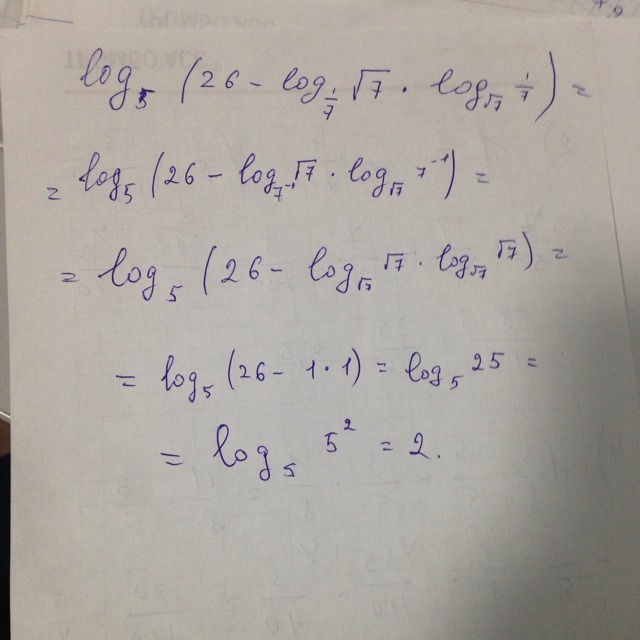 log₅ (26 − log_{1/7} √7 · log_{√7} 1/7) =
= log₅ (26 − log_{7⁻¹} √7 · log_{√7} 7⁻¹) =
= log₅ (26 − log_{√7} √7 · log_{√7} √7) =
= log₅ (26 − 1 · 1) = log₅ 25 =
= log₅ 5² = 2.